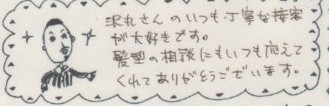 沢丸さんのいつも丁寧な接客
が大好きです。
髪型の相談にもいつも応えて
くれてありがとうございます。